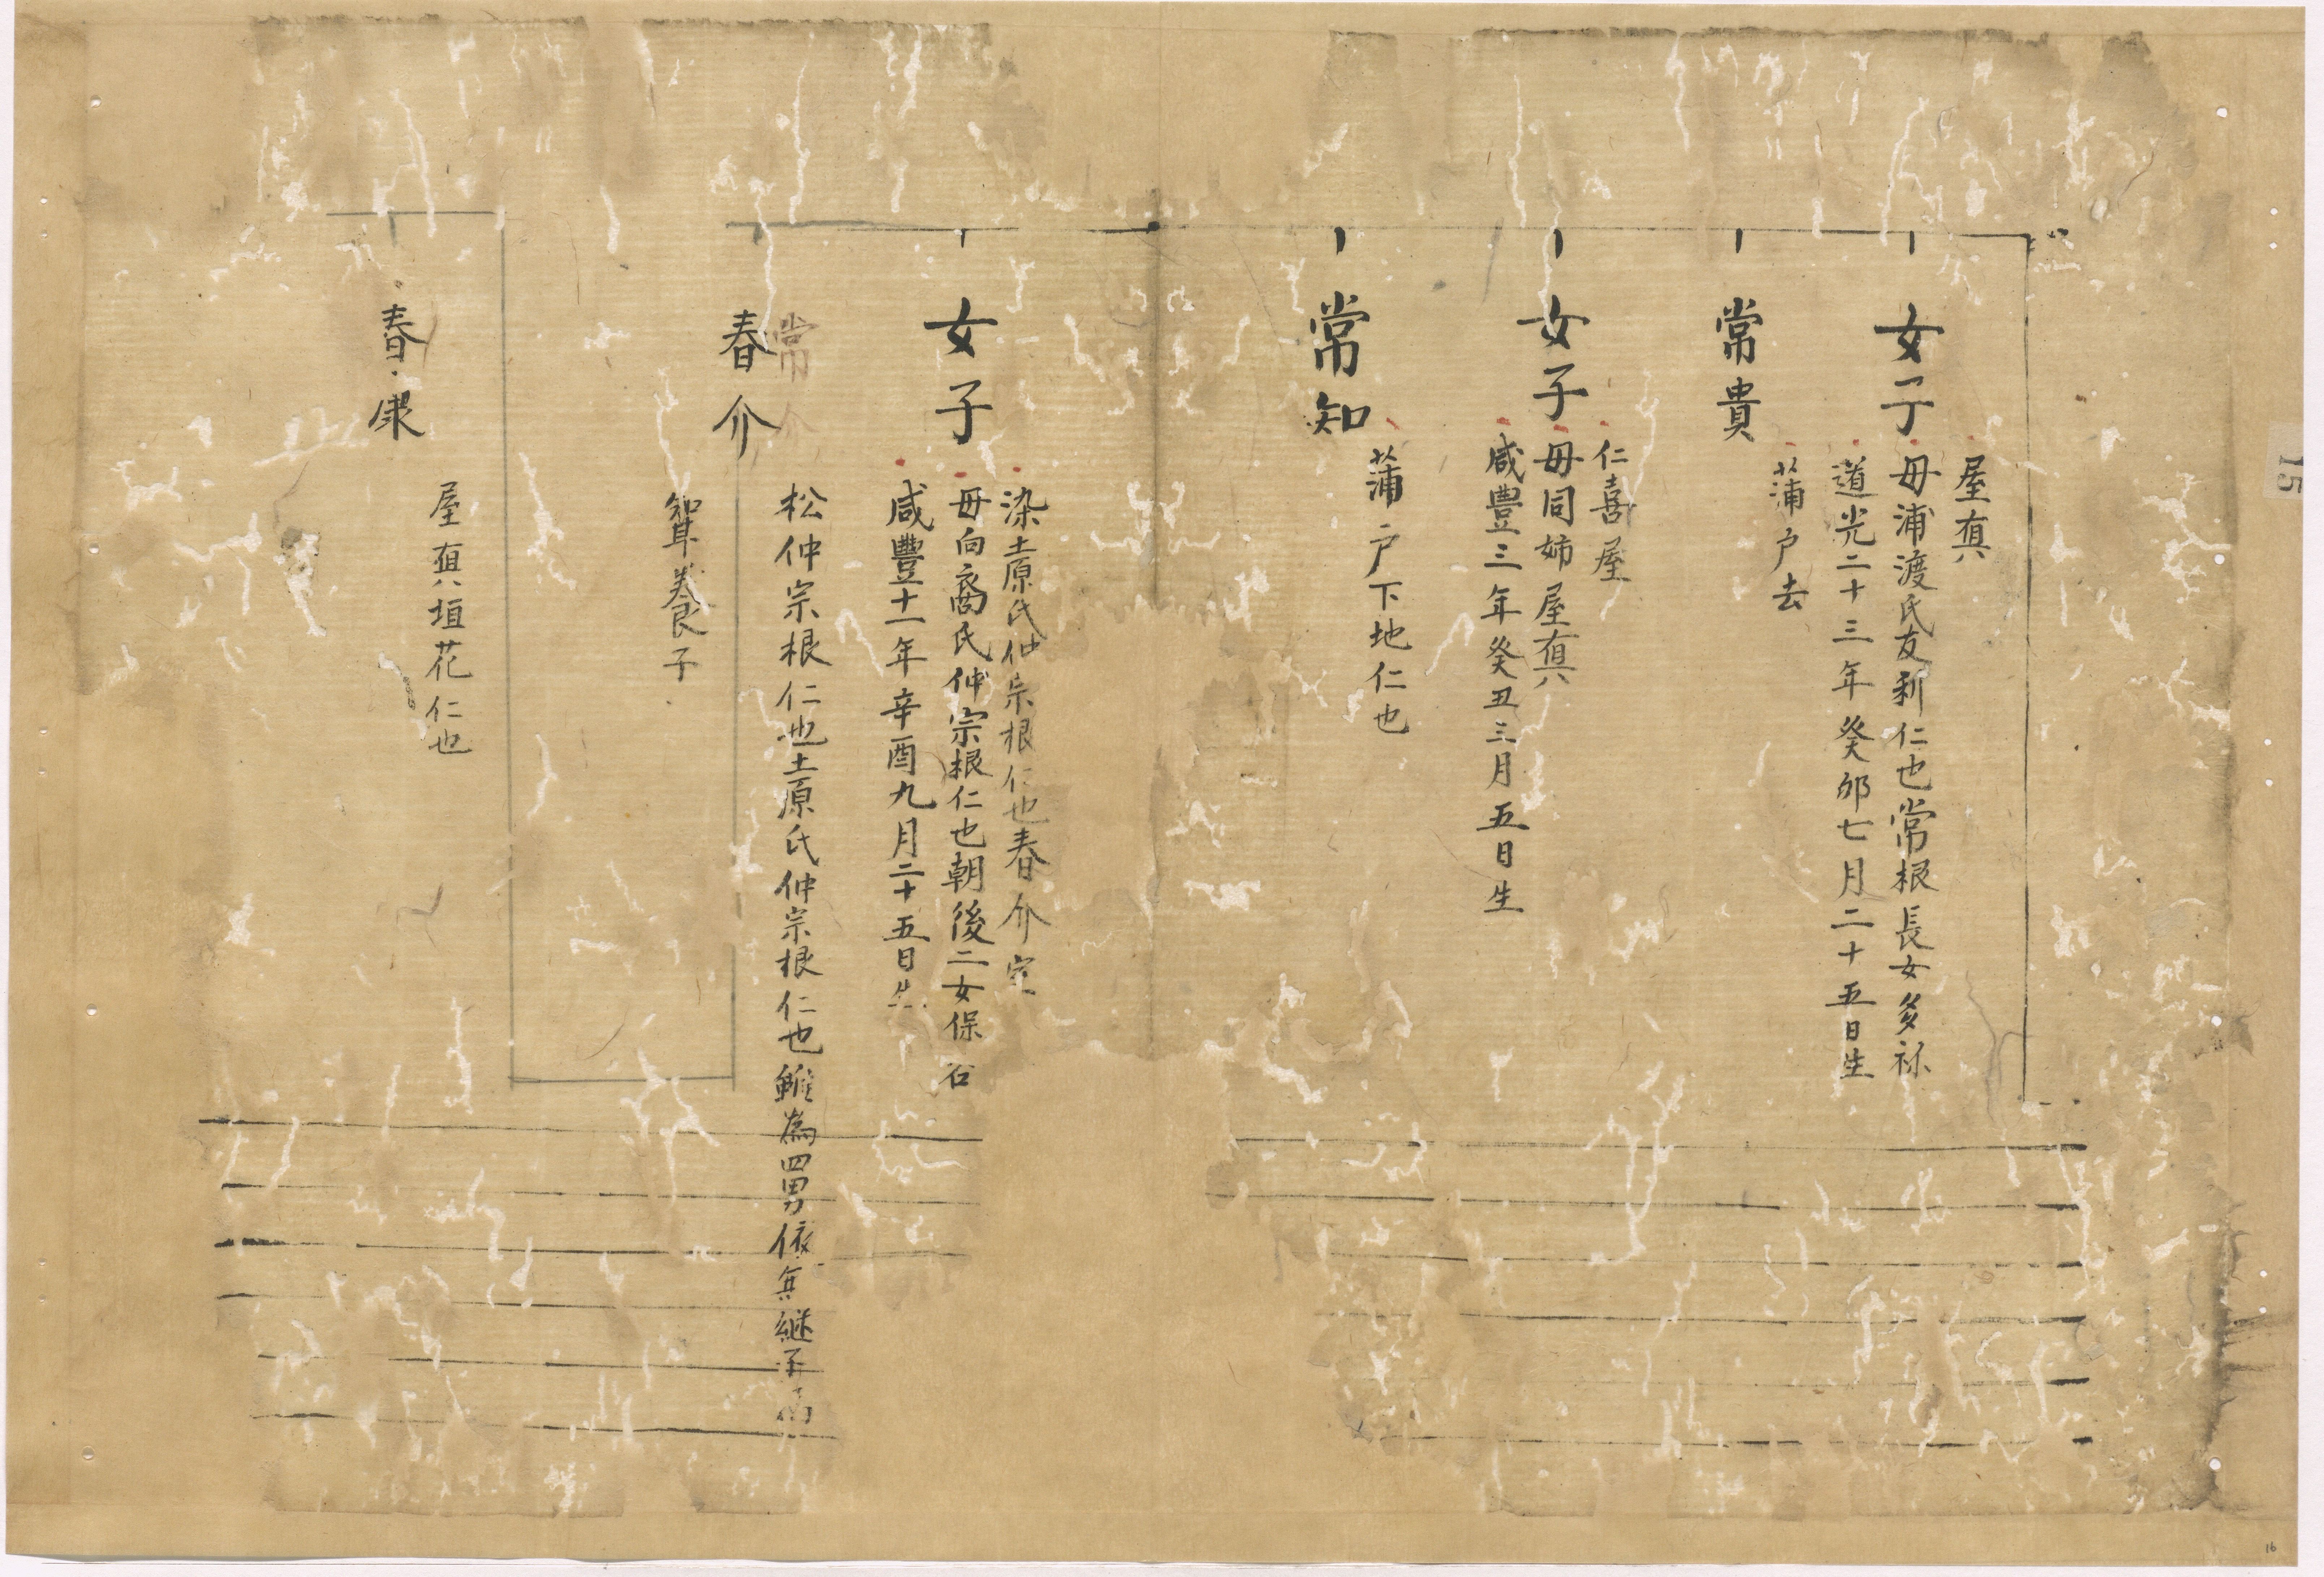 屋真
女子
母浦渡氏友利仁也常根長女多祢
道光二十三年癸卯七月二十五日生
常貴
蒲戸去
仁喜屋
女子
母同姉屋真
咸豐三年癸丑三月五日生
常知
蒲戸下地仁也
染土原氏仲宗根仁也春介室
女子
母向裔氏仲宗根仁也朝後二女保谷
咸豐十一年辛酉九月二十五日生
常介
春介
松仲宗根仁也土原氏仲宗根仁也雖為四男依無継子
聟養子
春康
屋真垣花仁也
15
16